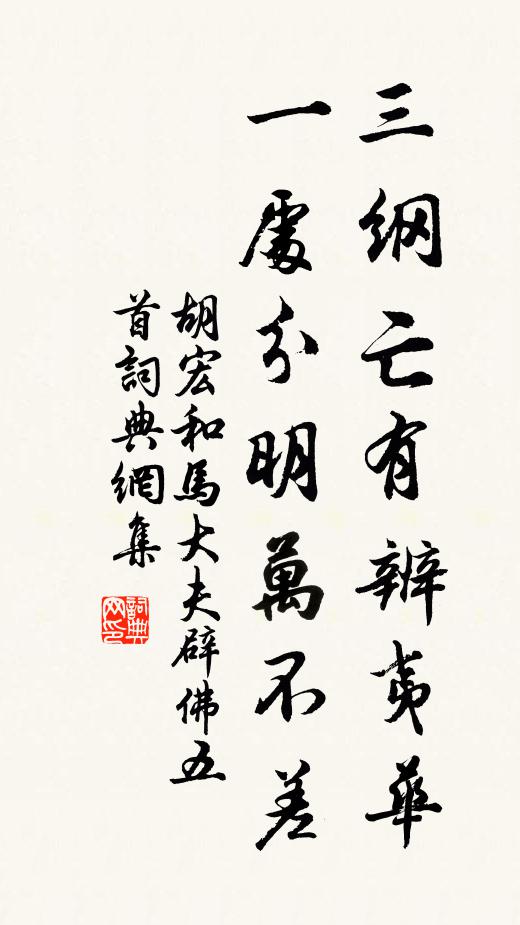 三纲亡有辨夷華
一處分明萬不差
胡宏和馬大夫辟佛五
首詞典網集
詞典
网印